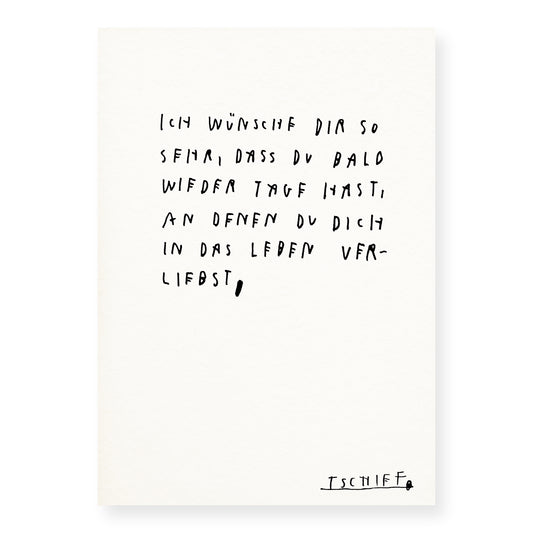 ICH WÜNSCHE DIR SO
SEHR, DASS DU BALD
WIEDER TAGE HAST,
AN DENEN DU DICH
IN DAS LEBEN VER-
LIEBST,
TSCHIEP.